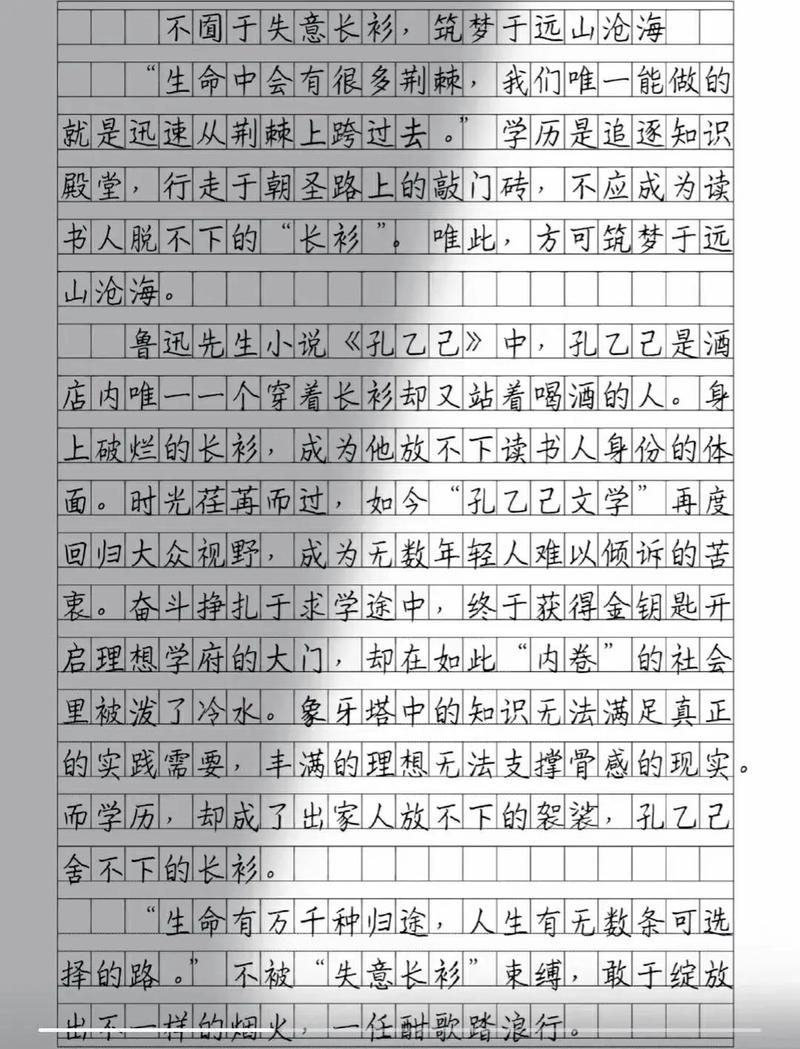 不囿于失意长衫，筑梦于远山沧海
“生命中会有很多荆棘，我们唯一能做的
就是迅速从荆棘上跨过去。”学历是追逐知识
殿堂，行走于朝圣路上的敲门砖，不应成为读
书人脱不下的“长衫”。唯此，方可筑梦于远
山沧海。
鲁迅先生小说《孔乙己》中，孔乙己是酒
店内唯一一个穿着长衫却又站着喝酒的人。身
上破烂的长衫，成为他放不下读书人身份的体
面。时光荏苒而过，如今“孔乙己文学”再度
回归大众视野，成为无数年轻人难以倾诉的苦
衷。奋斗挣扎于求学途中，终于获得金钥匙开
启理想学府的大门，却在如此“内卷”的社会
里被泼了冷水。象牙塔中的知识无法满足真正
的实践需要，丰满的理想无法支撑骨感的现实。
而学历，却成了出家人放不下的袈裟，孔乙己
舍不下的长衫。
“生命有万千种归途，人生有无数条可选
择的路。”不被“失意长衫”束缚，敢于绽放
出不一样的烟火，一任酣歌踏浪行。